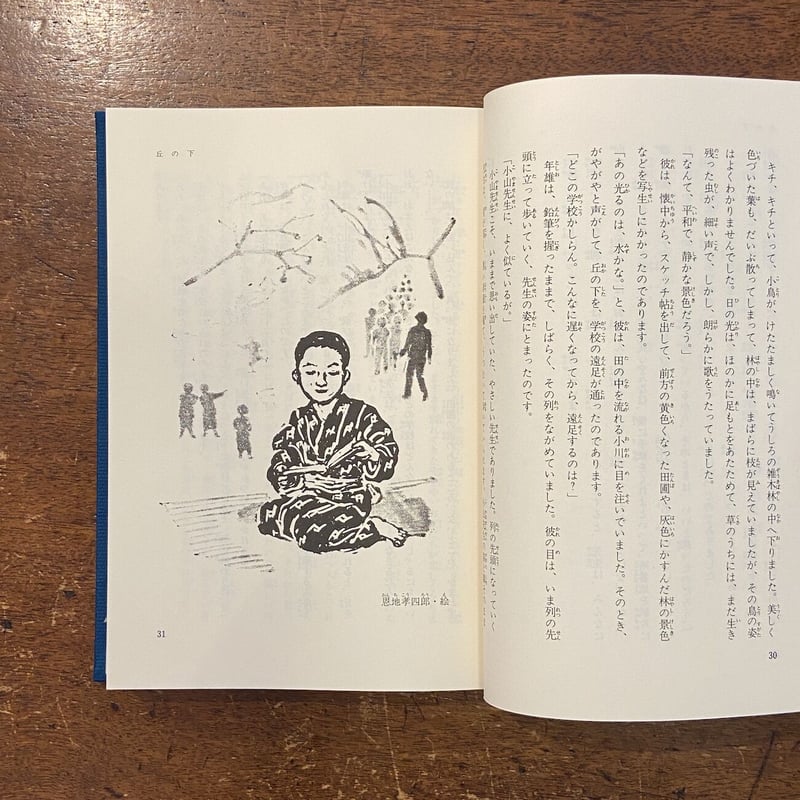 キチ、キチといって、小鳥が、けたたましく鳴いてうしろの雑木林の中へ下りました。美しく
色づいた葉も、だいぶ散ってしまって、林の中は、まばらに枝が見えていましたが、その鳥の姿
はよくわかりませんでした。日の光は、ほのかに足もとをあたためて、草のうちには、まだ生き
残った虫が、細い声で、しかし、朗らかに歌をうたっていました。
「なんて、平和で、静かな景色だろう。」
彼は、懐中から、スケッチ帖を出して、前方の黄色くなった田圃や、灰色にかすんだ林の景色
などを写生しにかかったのであります。
「あの光るのは、水かな。」と、彼は、田の中を流れる小川に目を注いでいました。そのとき、
がやがやと声がして、丘の下を、学校の遠足が通ったのであります。
「どこの学校かしらん。こんなに遅くなってから、遠足するのは？」
年雄は、鉛筆を握ったままで、しばらく、その列をながめていました。彼の目は、いま列の先
頭に立って歩いていく、先生の姿にとまったのです。
「小山先生に、よく似ているが。」
小山先生こそ、いままで思い出していた、やさしい先生でありました。列の先頭になっていく
30
丘の下
恩地孝四郎・絵
31